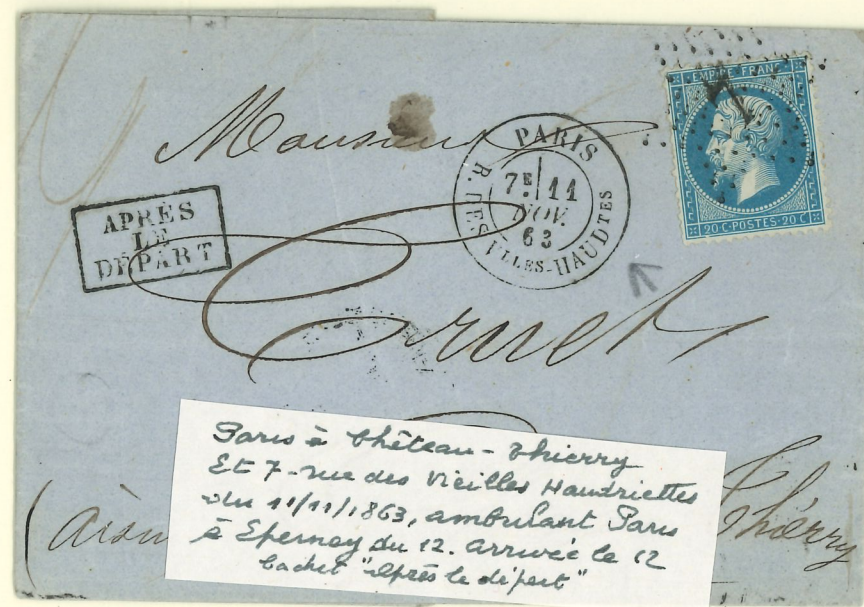 EMPIRE FRANC
20 C·POSTES·20 C
7
Monsieur
PARIS
7E 11
NOV.
63
R. DES VLLES-HAUDTES
APRÈS
LE
DÉPART
Paris à Château-Thierry
Et 7-rue des Vieilles Haudriettes
du 11/11/1863, ambulant Paris
à Epernay du 12. arrivée le 12
cachet "après le départ"
Thierry
(aisn